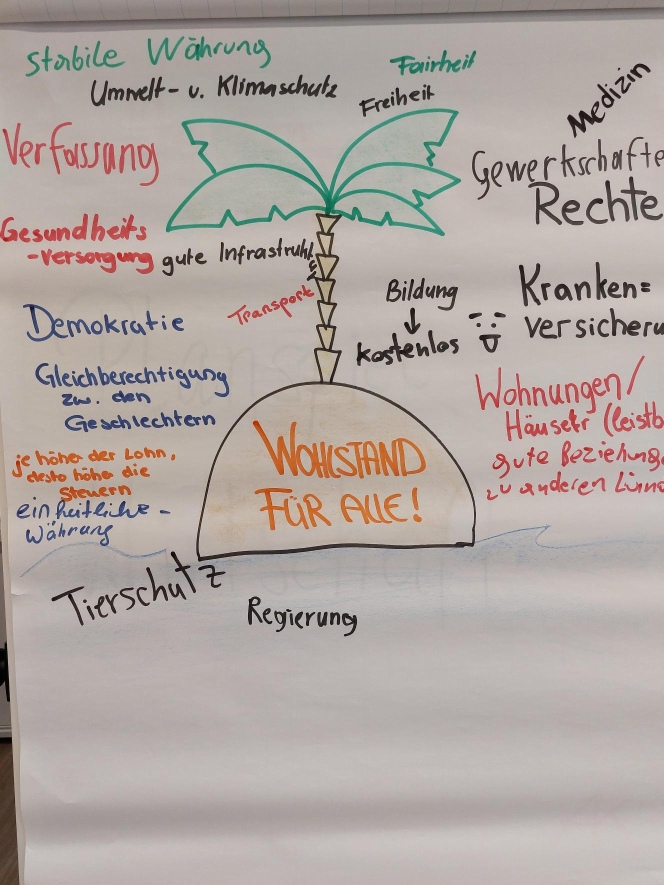 Stabile Währung
Umwelt- u. Klimaschutz
Fairheit
Freiheit
Medizin
Verfassung
Gewerkschafte
Rechte
Gesundheits
-versorgung
gute Infrastrukt
Transport
Bildung
↓
kostenlos
Kranken=
versicheru
Demokratie
Gleichberechtigung
zw. den
Geschlechtern
Wohnungen/
Häuser (leistb
gute Beziehung
zu anderen
je höher der Lohn,
desto höher die
Steuern
einheitliche -
Währung
WOHLSTAND
FÜR ALLE!
Tierschutz
Regierung